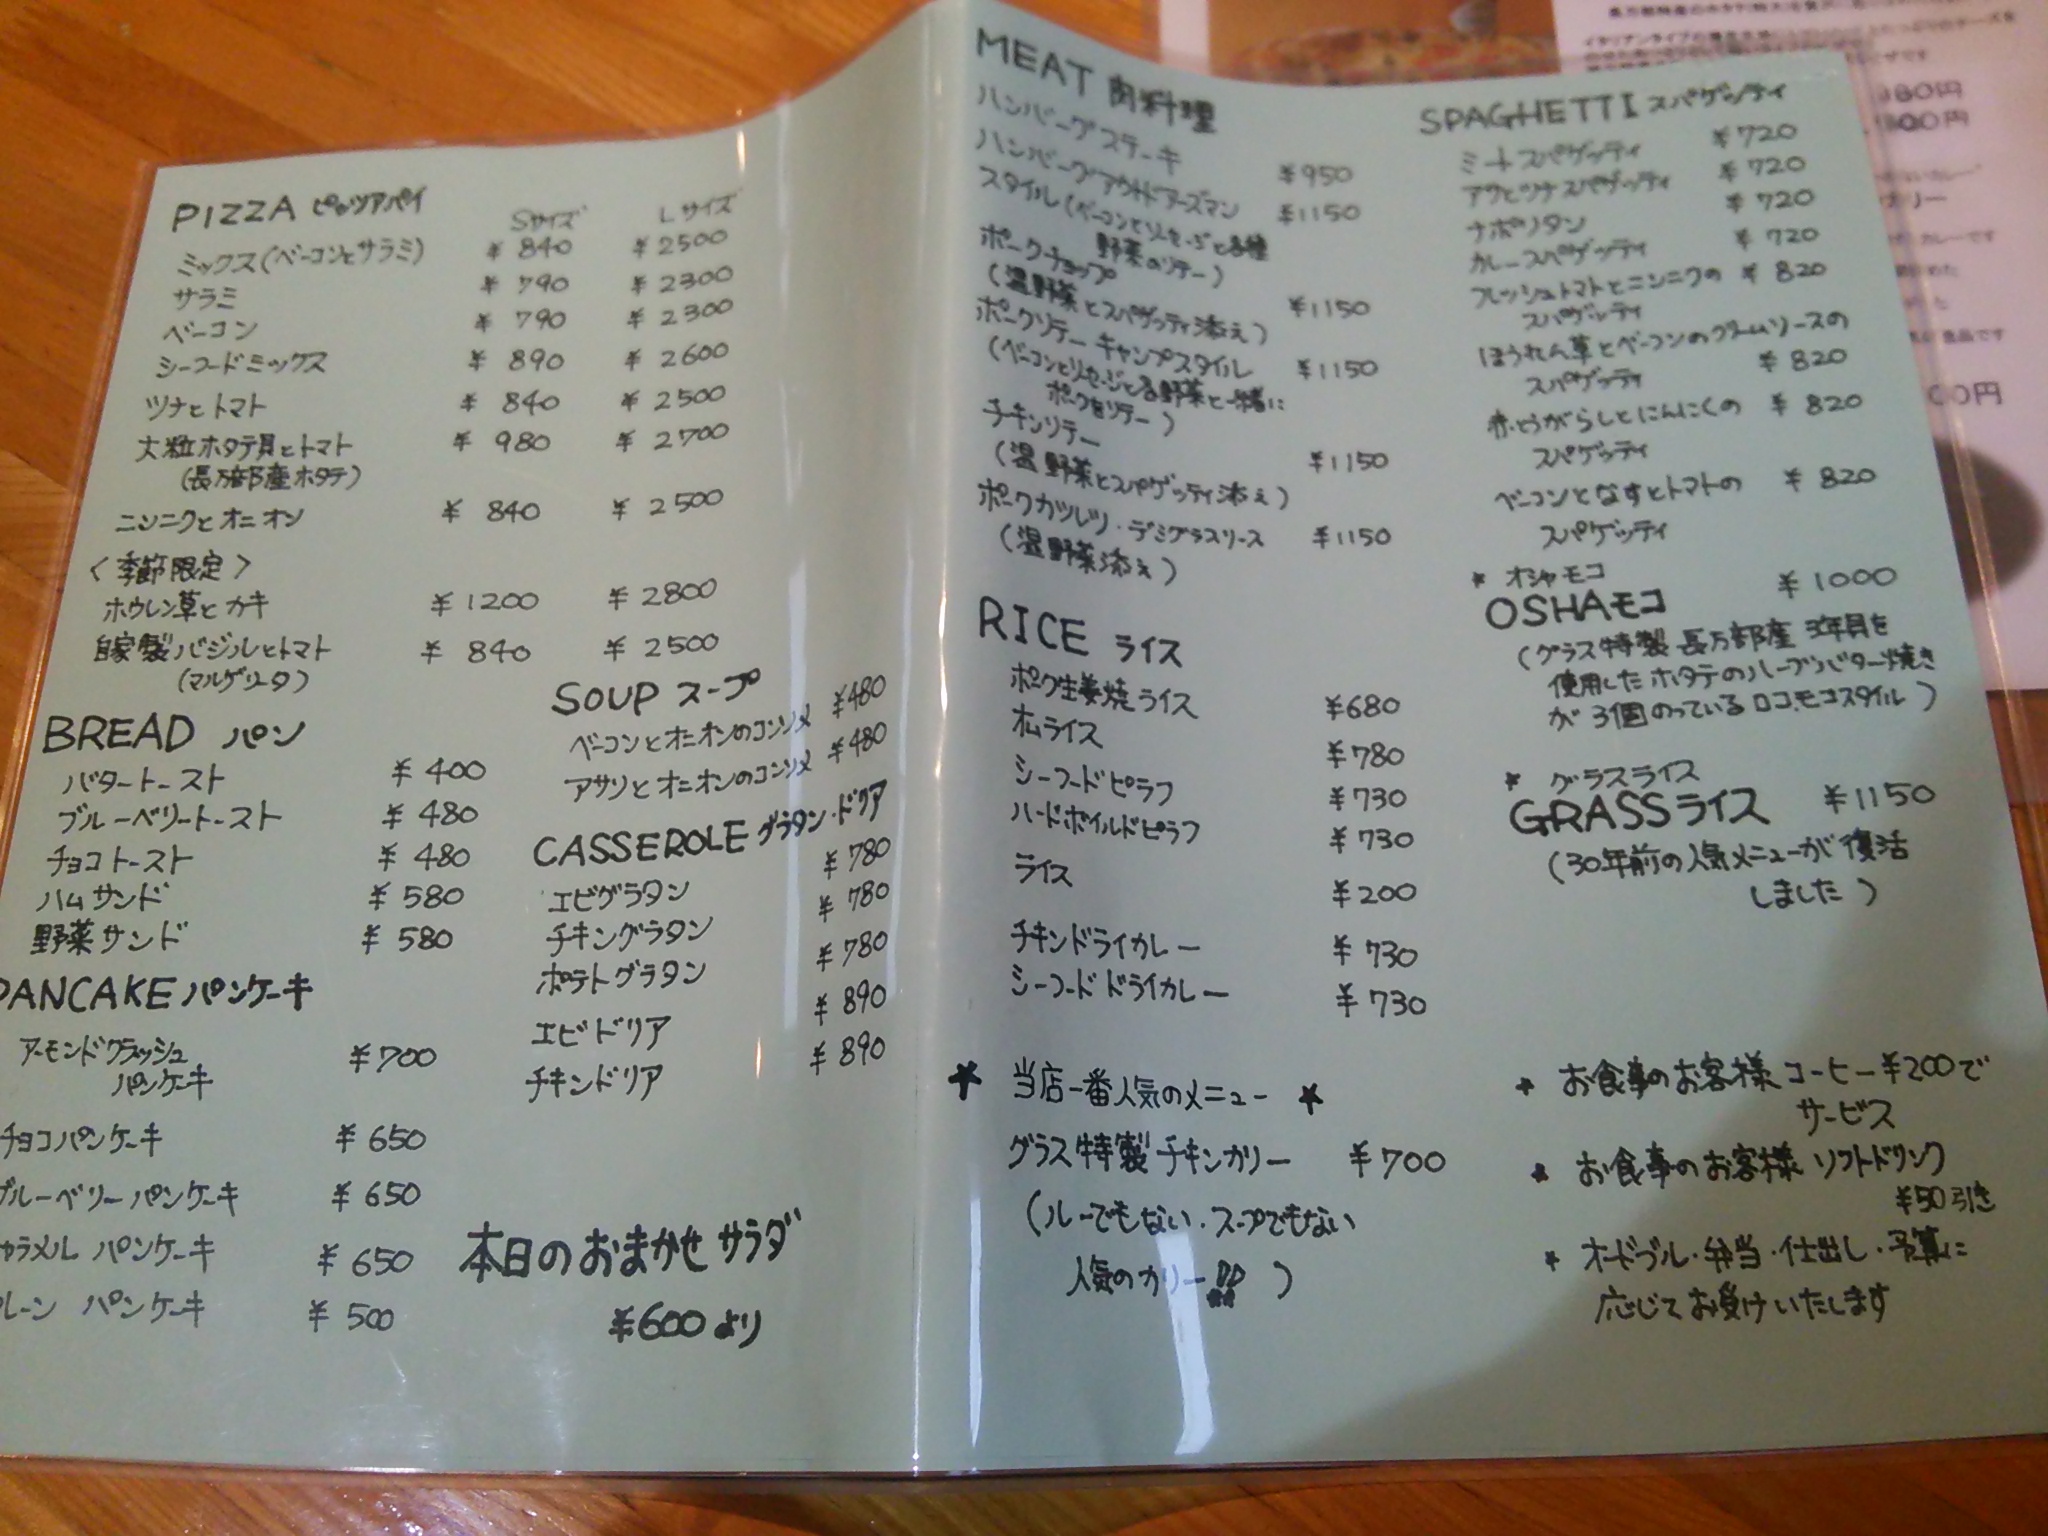 PIZZA ピッツアパイ
Sサイズ Lサイズ
ミックス(ベーコンとサラミ) ¥840 ¥2500
サラミ ¥790 ¥2300
ベーコン ¥790 ¥2300
シーフードミックス ¥890 ¥2600
ツナとトマト ¥840 ¥2500
大粒ホタテ貝とトマト ¥980 ¥2700
(長万部産ホタテ)
ニンニクとオニオン ¥840 ¥2500
<季節限定>
ホウレン草とカキ ¥1200 ¥2800
自家製バジルとトマト ¥840 ¥2500
(マルゲリータ)
BREAD パン
バタートースト ¥400
ブルーベリートースト ¥480
チョコトースト ¥480
ハムサンド ¥580
野菜サンド ¥580
PANCAKE パンケーキ
アーモンドクラッシュ ¥700
パンケーキ
チョコパンケーキ ¥650
ブルーベリーパンケーキ ¥650
キャラメル パンケーキ ¥650
プレーン パンケーキ ¥500
SOUP スープ
ベーコンとオニオンのコンソメ ¥480
アサリとオニオンのコンソメ ¥480
CASSEROLE グラタン・ドリア
エビグラタン ¥780
チキングラタン ¥780
ポテトグラタン ¥780
エビドリア ¥890
チキンドリア ¥890
本日のおまかせサラダ
¥600より
MEAT 肉料理
ハンバーグステーキ ¥950
ハンバーグアウトドアーズマン ¥1150
スタイル(ベーコンとソーセージと各種
野菜のソテー)
ポークチョップ ¥1150
(温野菜とスパゲッティ添え)
ポークソテー キャンプスタイル ¥1150
(ベーコンとソーセージと各野菜と一緒に
ポークをソテー)
チキンソテー ¥1150
(温野菜とスパゲッティ添え)
ポークカツレツ・デミグラスソース ¥1150
(温野菜添え)
RICE ライス
ポーク生姜焼ライス ¥680
オムライス ¥780
シーフードピラフ ¥730
ハードボイルドピラフ ¥730
ライス ¥200
チキンドライカレー ¥730
シーフードドライカレー ¥730
★ 当店一番人気のメニュー ★
グラス特製チキンカリー ¥700
(ルーでもない・スープでもない
人気のカリー!!)
SPAGHETTI スパゲッティ
ミートスパゲッティ ¥720
アサリとツナスパゲッティ ¥720
ナポリタン ¥720
カレースパゲッティ ¥720
フレッシュトマトとニンニクの ¥820
スパゲッティ
ほうれん草とベーコンのクリームソースの
スパゲッティ ¥820
赤とうがらしとにんにくの ¥820
スパゲッティ
ベーコンとなすとトマトの ¥820
スパゲッティ
★ オシャモコ
OSHAモコ ¥1000
(グラス特製 長万部産 3年貝を
使用したホタテのハーブバター焼き
が3個のっているロコモコスタイル)
★ グラスライス
GRASSライス ¥1150
(30年前の人気メニューが復活
しました)
★ お食事のお客様 コーヒー¥200で
サービス
★ お食事のお客様 ソフトドリンク
¥50引き
★ オードブル・弁当・仕出し・予算に
応じてお受けいたします